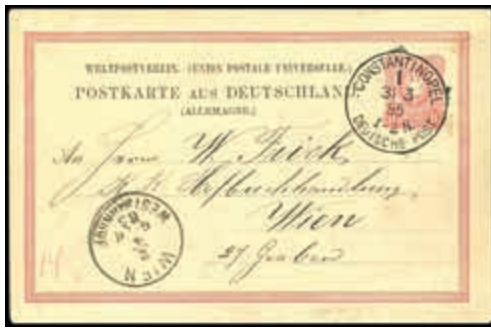 WELTPOSTVEREIN. (UNION POSTALE UNIVERSELLE.)
POSTKARTE AUS DEUTSCHLAND
(ALLEMAGNE.)
CONSTANTINOPEL
1
31 3
1-2 N.
DEUTSCHE POST
An Herrn W. Frick,
K. K. Hofbuchhandlung,
Wien
27 Graben
WIEN